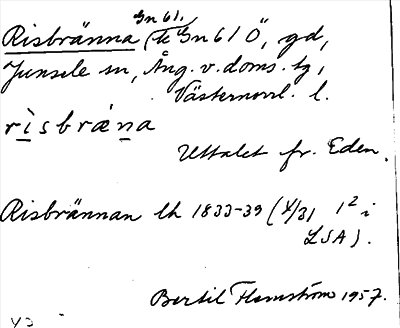 Gn 61.
Risbränna (te Gn 61 Ö", gd,
Junsele sn, Ång. v. doms. tg,
Västernorrl. l.
rìsbrǽna
Uttalet fr. Edén.
Risbrännan lh 1833-39 (4/31 1² i
LSA).
Bertil Flemström 1957.